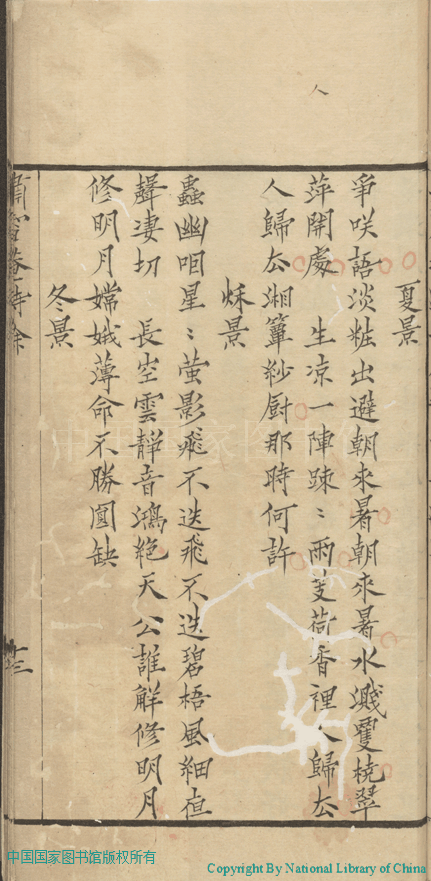 夏景
爭咲語淡粧出避朝來暑朝來暑水濺雙橈翠
萍開處　生凉一陣踈〻雨芰荷香裡人歸去
人歸去湘簟紗厨那時何許
秌景
蟲幽咱星〻螢影飛不迭飛不迭碧梧風細𢘆
聲凄切　長空雲靜音鴻絶天公誰解修明月
修明月嫦娥薄命不勝圓缺
冬景
詩餘
十三
人
中国国家图书馆
中国国家图书馆版权所有
Copyright By National Library of China